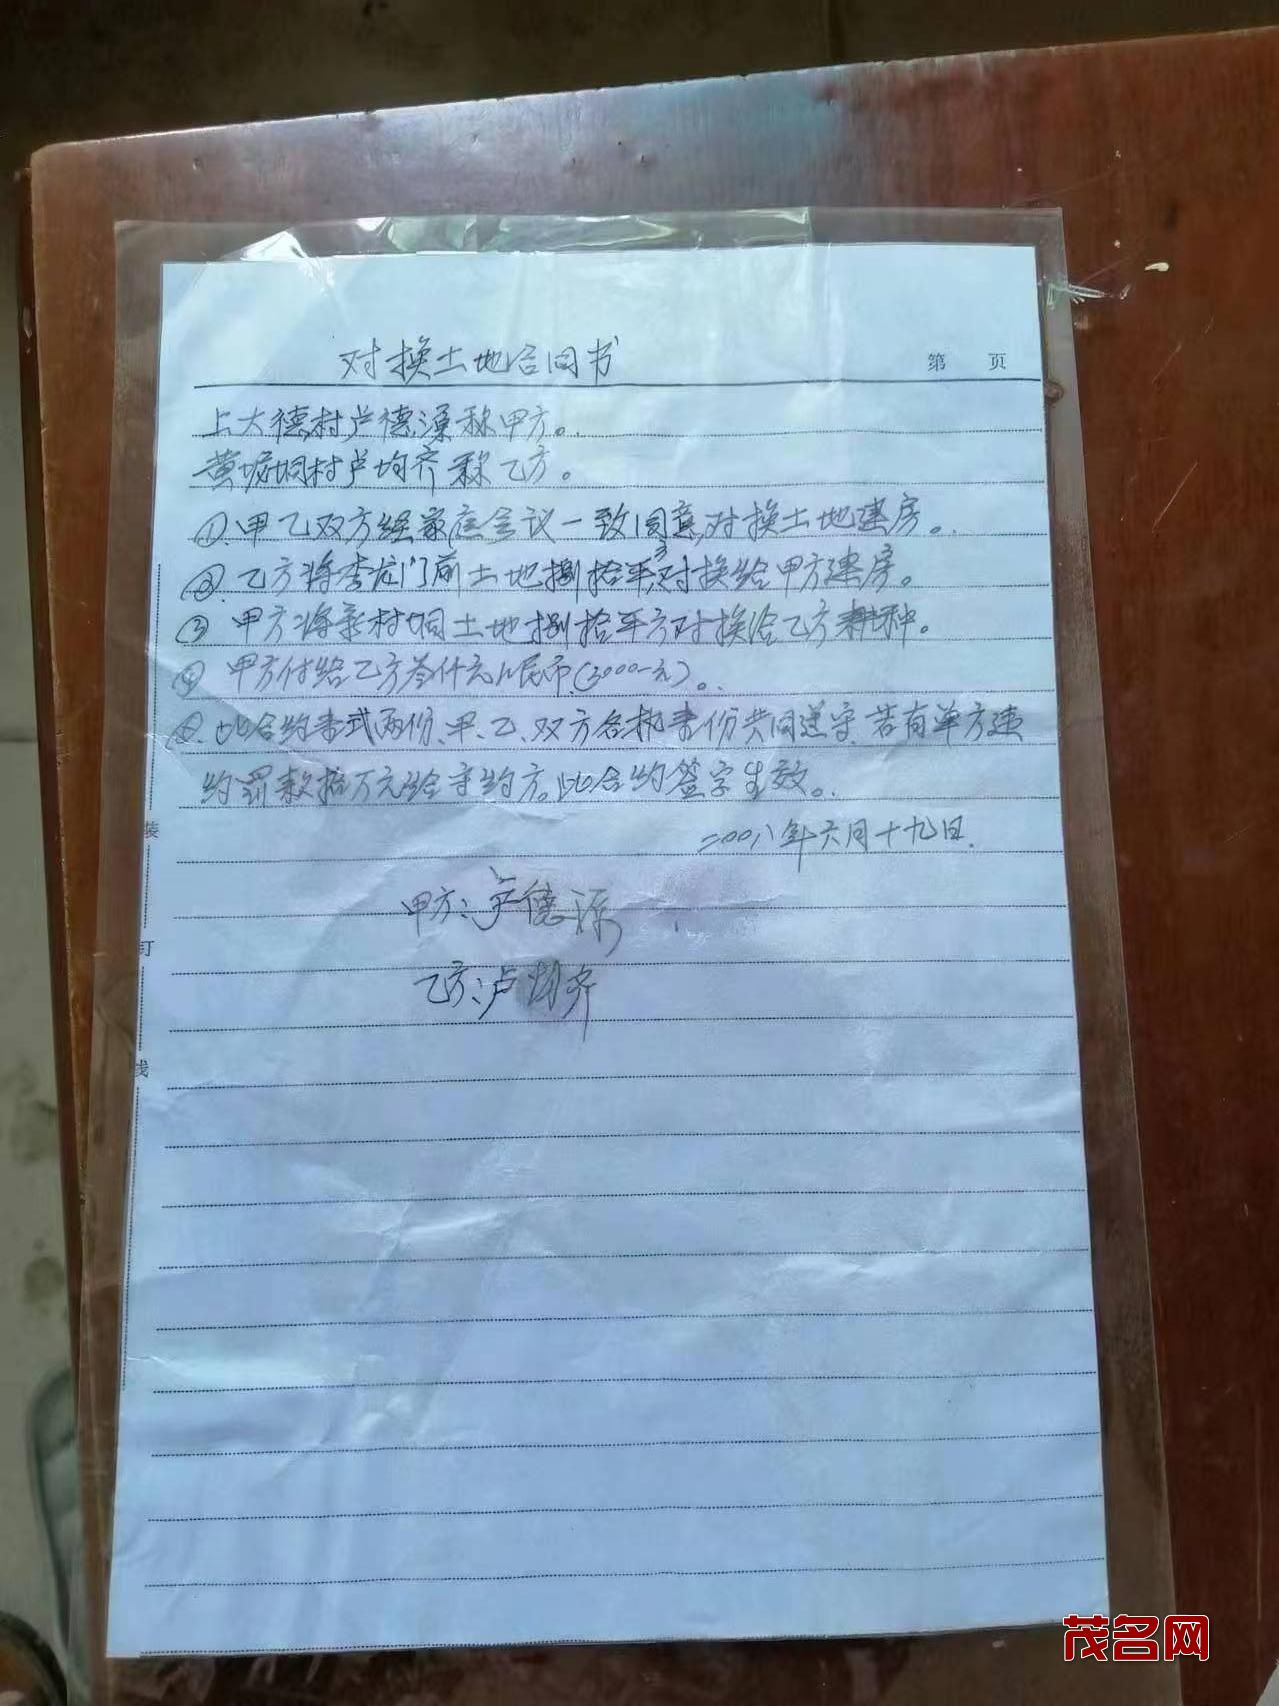 对换土地合同书
第 页
上大德村卢德源称甲方。
黄坭垌村卢均齐称乙方。
①.甲乙双方经家庭会议一致同意,对换土地建房。
②.乙方将 门前土地捌拾平方对换给甲方建房。
③ 甲方将新村垌土地捌拾平方对换给乙方耕种。
④ 甲方付给乙方叁仟元人民币(3000-元)。
⑤.此合约壹式两份、甲、乙、双方各执壹份共同遵守,若有单方违
约罚款拾万元给守约方。此合约签字生效。
二00八年六月十九日.
甲方:卢德源
乙方:卢均齐
装
订
线
茂名网